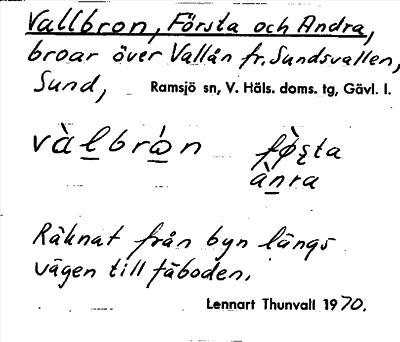 Vallbron, Första och Andra,
broar över Vallån fr. Sundsvallen,
Sund, Ramsjö sn, V. Häls. doms. tg, Gävl. l.
và l̲ brò̲n fø̀ʂta
àn̲ra
Räknat från byn längs
vägen till fäboden.
Lennart Thunvall 1970.